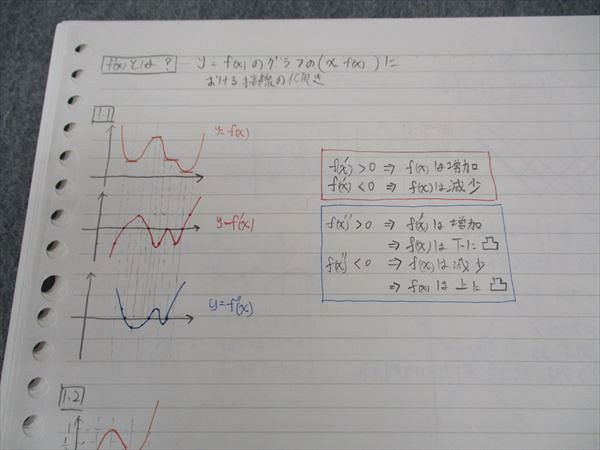 f'(x)とは? y = f(x)のグラフの(x f(x))に
おける接線の傾き
1-1
y=f(x)
y=f'(x)
y=f''(x)
f'(x) > 0 ⇒ f(x)は増加
f'(x) < 0 ⇒ f(x)は減少
f(x)'' > 0 ⇒ f'(x)は増加
⇒ f(x)は下に凸
f(x)'' < 0 ⇒ f'(x)は減少
⇒ f(x)は上に凸
1-2
1